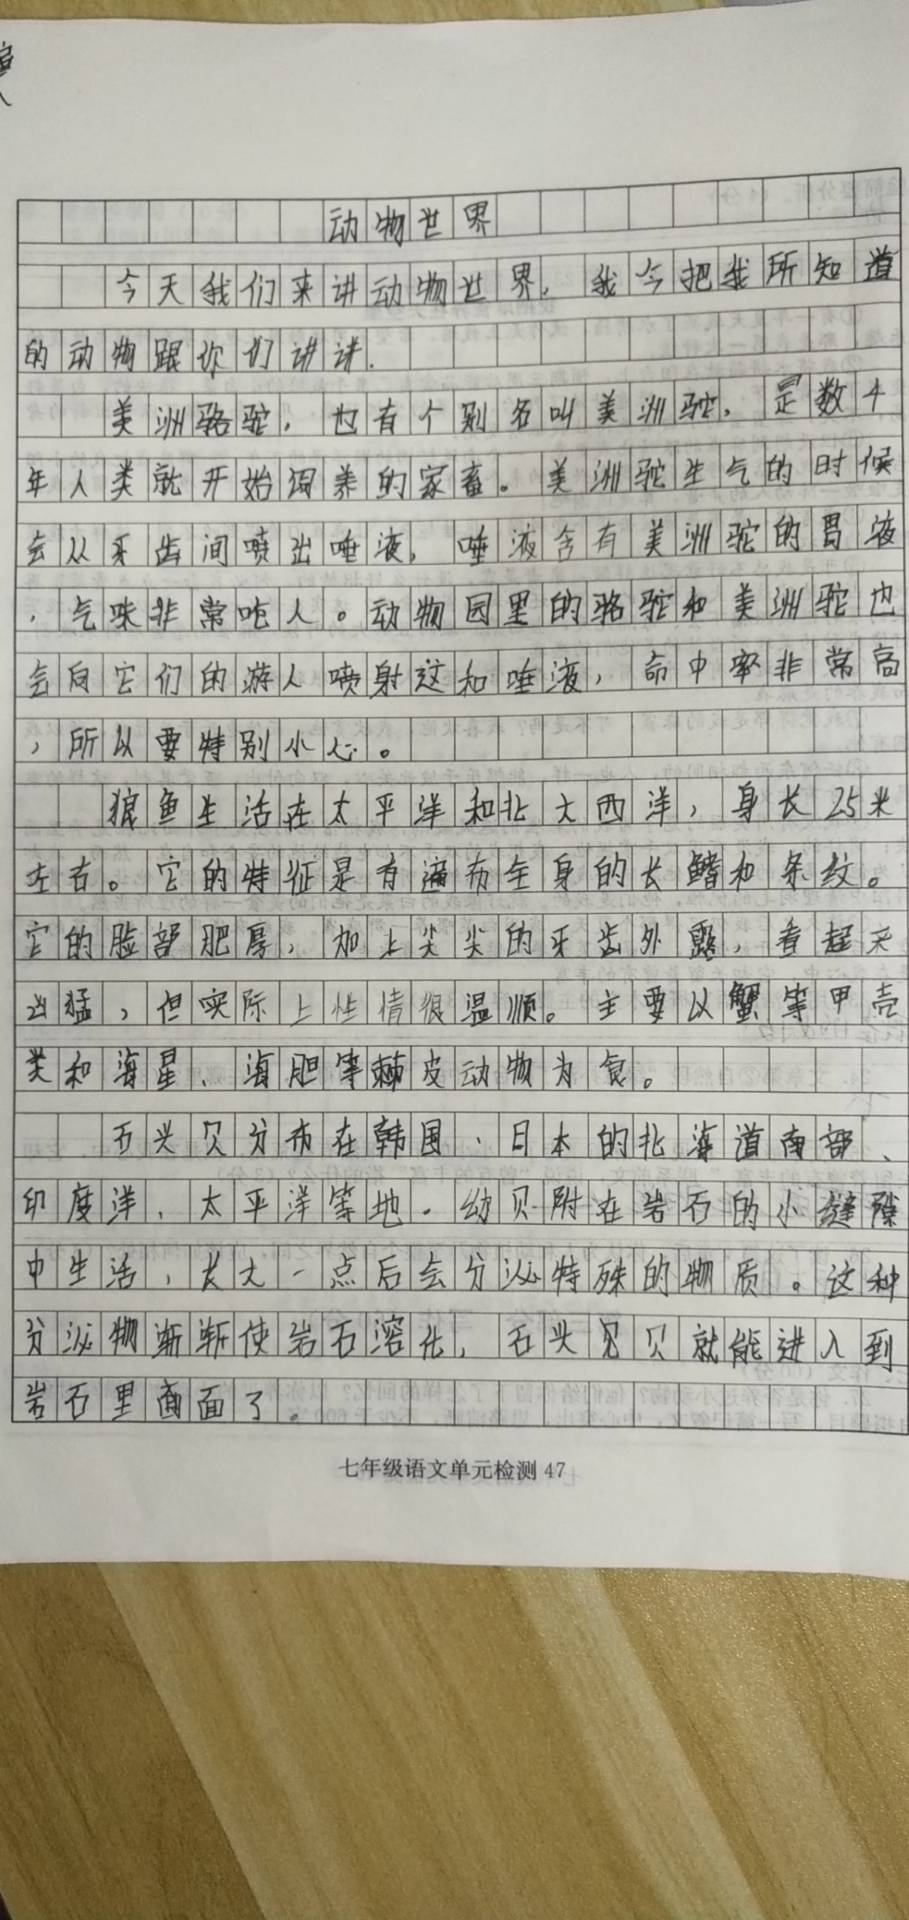 动物世界
今天我们来讲动物世界，我今把我所知道
的动物跟你们讲讲.
美洲骆驼，也有个别名叫美洲驼，是数千
年人类就开始饲养的家畜。美洲驼生气的时候
会从牙齿间喷出唾液，唾液含有美洲驼的胃液
，气味非常呛人。动物园里的骆驼和美洲驼也
会向它们的游人喷射这和唾液，命中率非常高
，所以要特别小心。
狼鱼生活在太平洋和北大西洋，身长25米
左右。它的特征是有遍布全身的长鳍和条纹。
它的脸部肥厚，加上尖尖的牙齿外露，看起来
凶猛，但实际上性情很温顺。主要以蟹等甲壳
类和海星、海胆等棘皮动物为食。
石头贝分布在韩国、日本的北海道南部、
印度洋、太平洋等地。幼贝附在岩石的小缝隙
中生活，长大一点后会分泌特殊的物质。这种
分泌物渐渐使岩石溶化，石头贝就能进入到
岩石里面了。
七年级语文单元检测 47